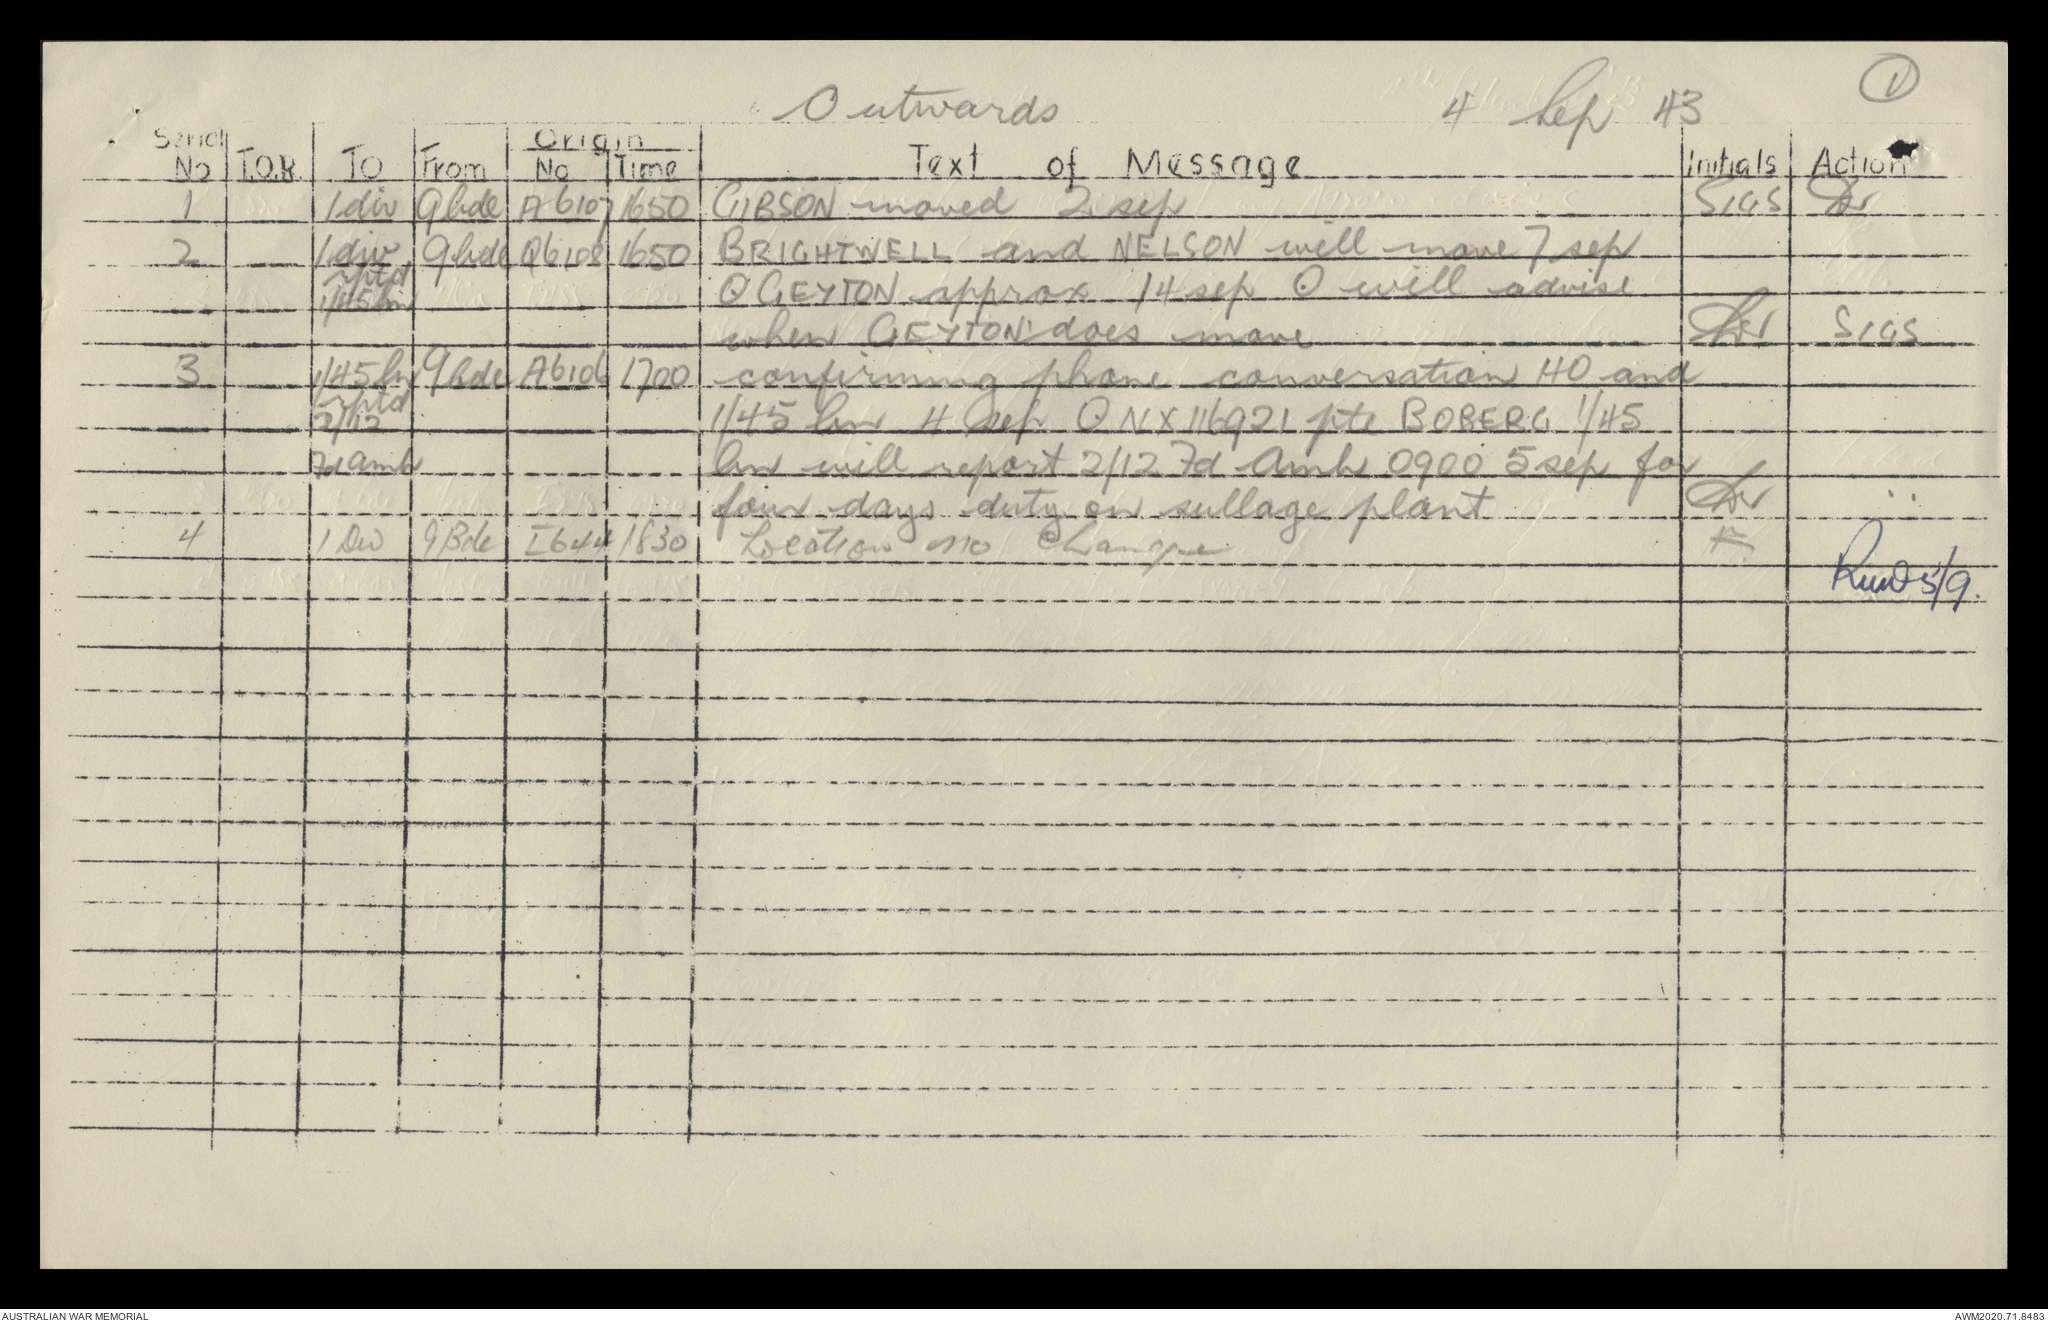 Outwards 4 Sep 43 1
Serial Origin
No T.O.R. TO From No Time Text of Message Initials Action
1 1 div 9 bde A6107 1650 GIBSON moved 2 sep SIGS
2 1 div 9 bde A6108 1650 BRIGHTWELL and NELSON will move 7 sep
rptd
1/45 bn O GEYTON approx 14 sep O will advise
when GEYTON does move SIGS
3 1/45 bn 9 bde A6106 1700 confirming phone conversation HQ and
rptd
2/12 1/45 bn 4 Sep O NX116921 pte BOBERG 1/45
Fd Amb bn will report 2/12 Fd Amb 0900 5 sep for
four days duty on sullage plant "
4 1 Div 9 Bde I644 1830 Location no change
5/9.
AUSTRALIAN WAR MEMORIAL AWM2020.71.8483